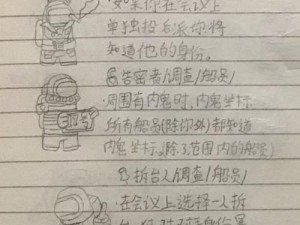 如果你在会议上
单独投右派你将
知道他的身份。
告密者/调查/船员/
周围有内鬼时,内鬼坐标
所有船员(除你外)都知道
内鬼坐标。(除3范围内的船员)
拆台人/调查/船员/
在会议上选择一人拆